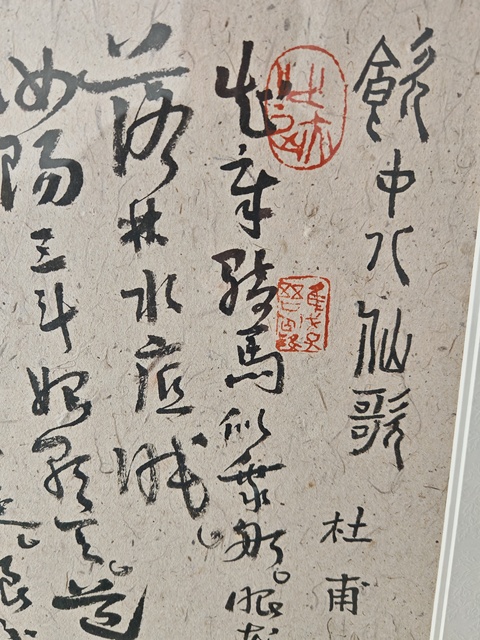 飲中八仙歌
杜甫
知章騎馬似乘船。眼花
落井水底眠。
汝陽三斗始朝天。道